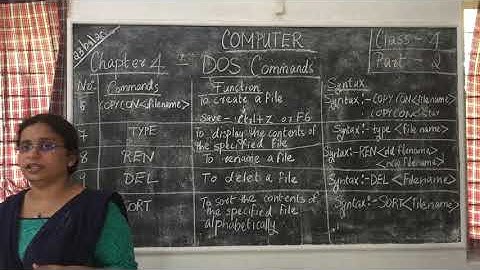 COMPUTER
Class - 4
Part - 2
Chapter 4 :- DOS Commands
No. Commands Function Syntax
6 COPYCON<filename> To create a file Syntax:- COPYCON<filename>
Save - ctrl+Z or F6
7 TYPE To display the contents of the specified file Syntax:- type <file name>
8 REN To rename a file Syntax:-REN<old filename>
<new filename>
9 DEL To delet a file Syntax:-DEL <Filename>
SORT To sort the contents of the specified file alphabetically Syntax:-SORT<filename>